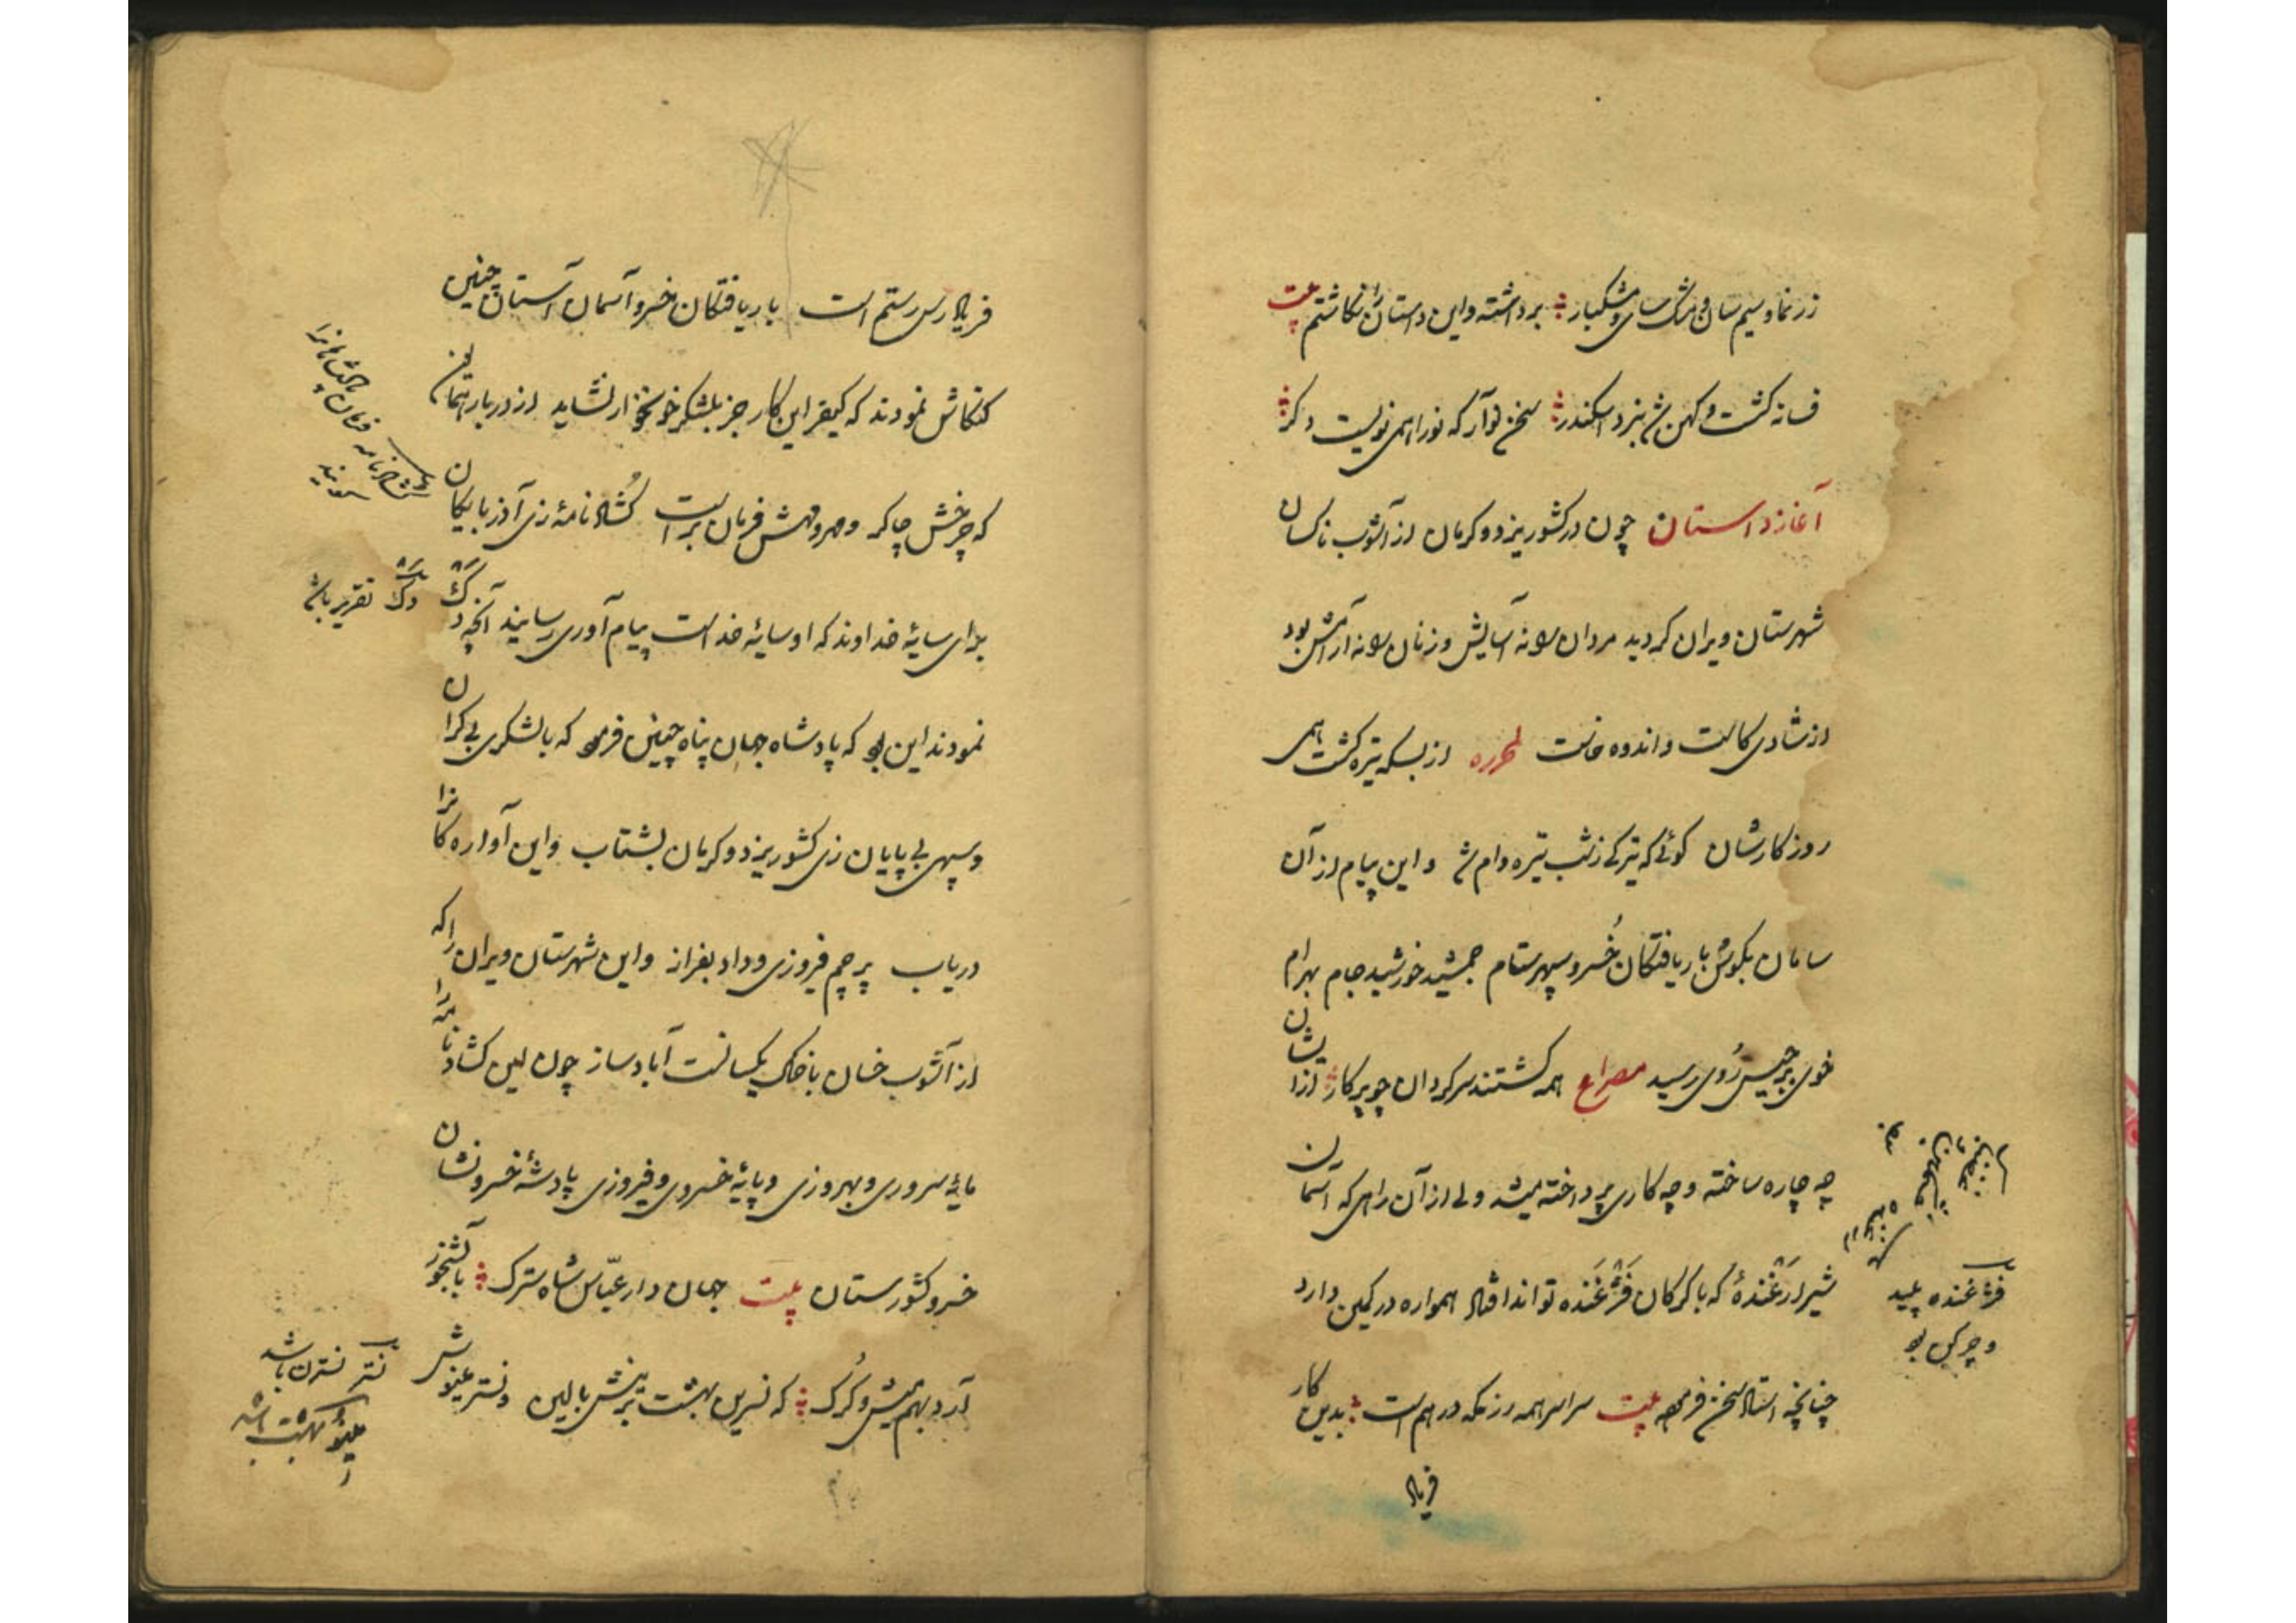 زرنما و سیم سان و مشک سای و مشکبار برداشته و این داستان را نگاشتم بیت
فسانه کشت و کهن شد نبرد اسکندر سخن نو آر که نو را همی نویست دکر
آغاز داستان چون در کشور یزد و کرمان از آشوب ناکسان
شهرستان ویران کردید مردان را نه آسایش و زنان را نه آرامش بود
از شادی کاست و اندوه خاست لمحرره از بسکه تیره کشت همی
روزکارشان کوئی که تیرکی ز شب تیره وام شد و این پیام از آن
سامان بکوش باریافتکان خُسرو سپهر ستام جمشید خورشید جام بهرام
خوی برجیس رُوی رسید مصراع همه کشتند سرکردان چو پرکار ازیشان
چه چاره ساخته و چه کاری پرداخته میشد ولی از آن راهی که آسمان
شیر ارغنده که با کرکان فژغنده تواند افتاد همواره در کمین دارد
چنانچه استاد سخن فرموده بیت سراسر همه رزمکه درهم است بدین کار
فریاد
فژغنده پلید
و چرکین بود
فریادرس رستم است باریافتکان خسرو آسمان آستان چنین
کنکاش نمودند که کیفر این کار جز بلشکر خونخوار نشاید از دربار
که چرخش چاکر و مهر و مهش فرمان بر است کُشادنامهٔ زی آذربایکان
برای سایهٔ خداوند که او سایهٔ خداست پیام آوری رسانید آنچه دک
نمودند این بود که پادشاه جهان پناه چنین فرمود که با لشکری بی کران
و سپهی بی پایان زی کشور یزد و کرمان بشتاب و این آواره کانرا
دریاب پرچم فیروزی و داد بفراز و این شهرستان ویران را که
از آشوب خسان با خاک یکسانست آباد ساز چون این کشادنامه را
مایهٔ سروری و بهروزی و پایهٔ خسروی و فیروزی پادشهٔ خسرو نشان
خسرو کشورستان بیت جهان دار عبّاس شاه سترک بآبشخور
آرد بهم میش و کُرک که نسرین بهشت برینش بالین و نستر مینوش
کشادنامه فرمان
دک تقریر باشد
نستر نسترن باشد
مینو بهشت باشد